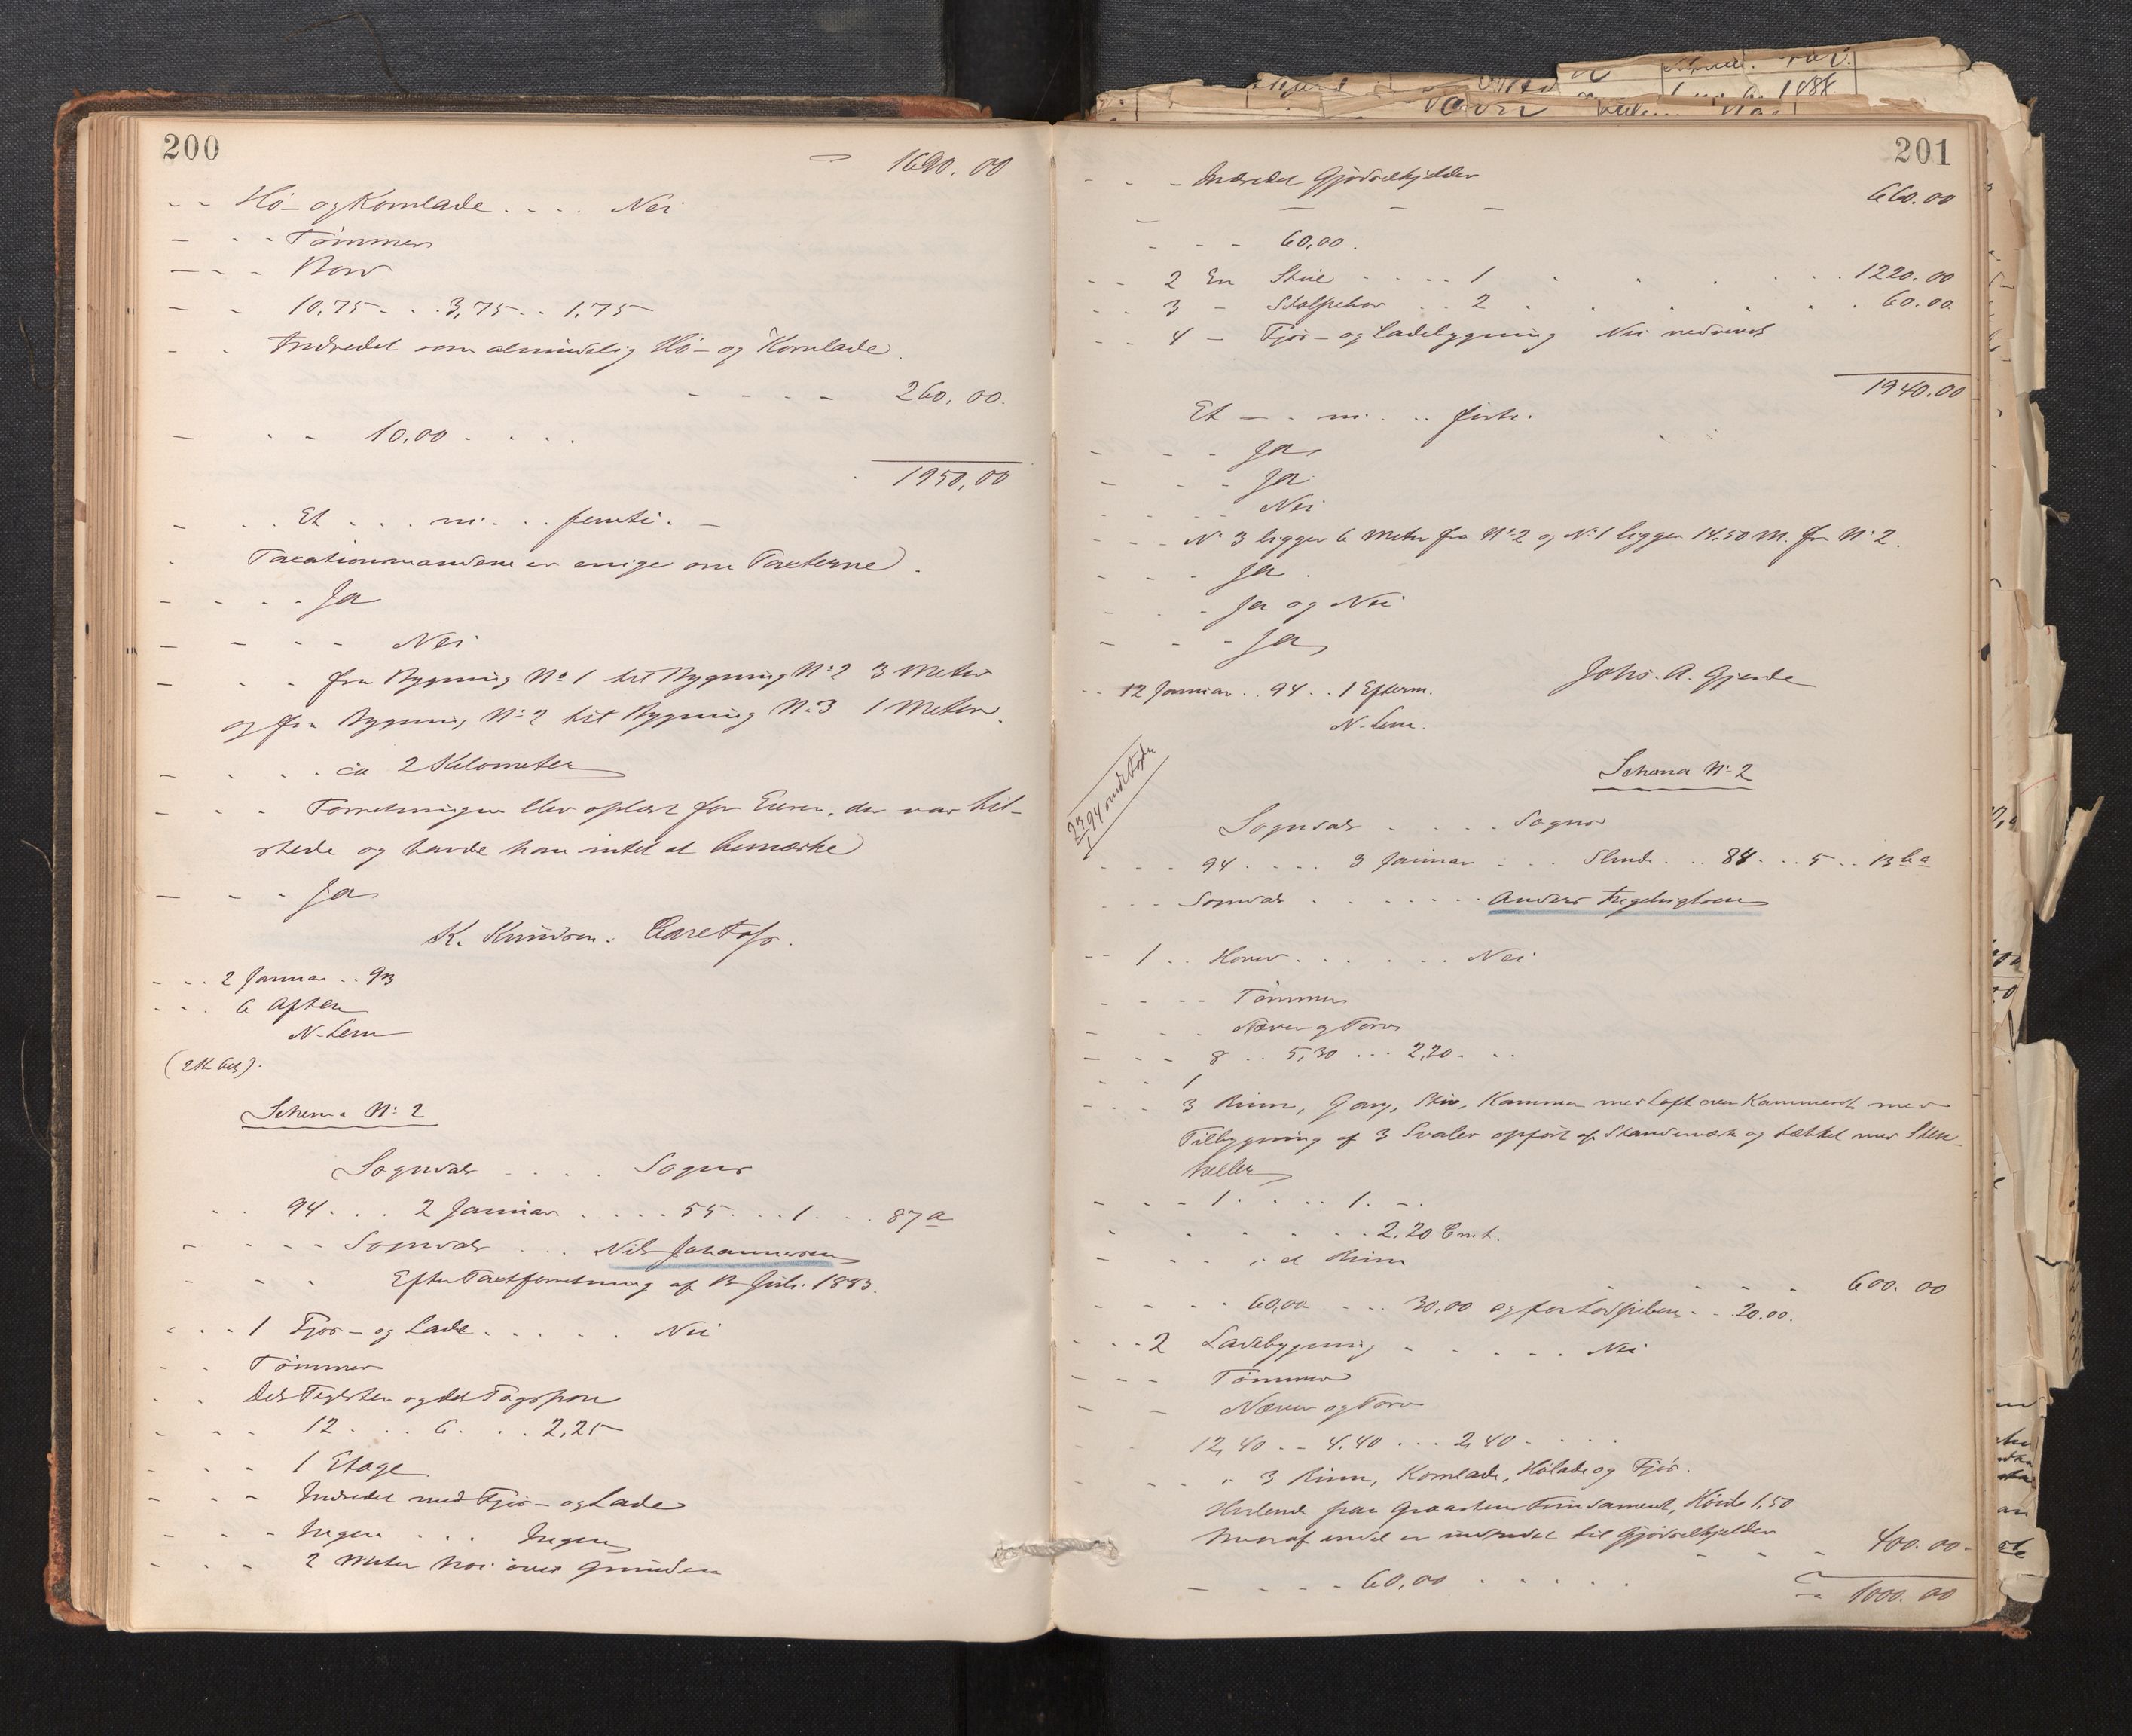 200
1690.00
Hö- og Kornlade .... Nei
Tømmer
10,75 .. 3,75 .. 1,75
Indredet som almindelig Hö- og Kornlade.
260,00.
10,00 ....
1950,00
Et ... ni ... femti. –
Taxationsmændene er enige om Taxterne.
Ja
Nei
fra Bygning No 1 til Bygning No 2 3 Meter
og fra Bygning No 2 til Bygning No 3 1 Meter.
ca 2 Kilometer
Forretningen blev oplæst for Eieren, der var til-
stede og havde han intet at bemærke
Ja
K. Knudsen.
2 Januar .. 93
6 Aften
N. Lem
Schema No 2
Sogndals .... Sogns
94 ... 2 Januar .... 55 ... 1 ... 87 a
Sogndals ... Nils Johannesen
Efter Taxtforretning af 13 Juli 1883.
1 Fjøs- og Lade ..... Nei
Tømmer
Dels Teglsten og del Tagspon
12 ... 6 ... 2,25
1 Etage
Indredet med Fjøs- og Lade
Ingen ... Ingen
2 Meter høi over Grunden
201
Indredet Gjødselkjelder
660.00
60,00.
2 En Stue .... 1 ... 1220.00
3 – Stolpebod .. 2 ... 60.00
4 – Fjøs- og Ladebygning Nei nedrevet
1940.00
Et – . ni . .. førti.
Ja
Ja
Nei
No 3 ligger 6 Meter fra No 2 og No 1 ligger 14.50 M. fra No 2.
Ja.
Ja og Nei
Ja
12 Januar .. 94 .. 1 Efterm.
Johs. A. Gjerde
N. Lem.
Schema No 2
Sogndals .... Sogns
94 .... 3 Januar ... 84 ... 5 .. 13
Sogndals ....... Anders Ingebrigtsen
1 .. Hoved ...... Nei
Tømmer
Næver og Torv
8 .. 5,30 ... 2,20 ...
1
3 Rum, Gang, Stue, Kammer med Loft over Kammerset med
Tilbygning af 3 Svaler opført af Standerværk og tækket med Sten-
heller
1 .... 1 . –.
2,20
i et Rum
600.00
60,00 ... 30,00 og for ... 20.00.
2 Ladebygning ..... Nei
Tømmer
Næver og Torv
12,40 .. 4.40 ... 2,40 ...
3 Rum, Kornlade, Hølade og Fjøs.
Hvilende paa Graasten Fundament, Høide 1,50
hvoraf endel er indredet til Gjødselkjelder
400.00
60,00 .....
1000.00